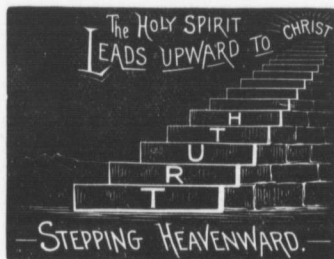 The HOLY SPIRIT
LEADS UPWARD TO CHRIST
H
T
U
R
T
STEPPING HEAVENWARD.